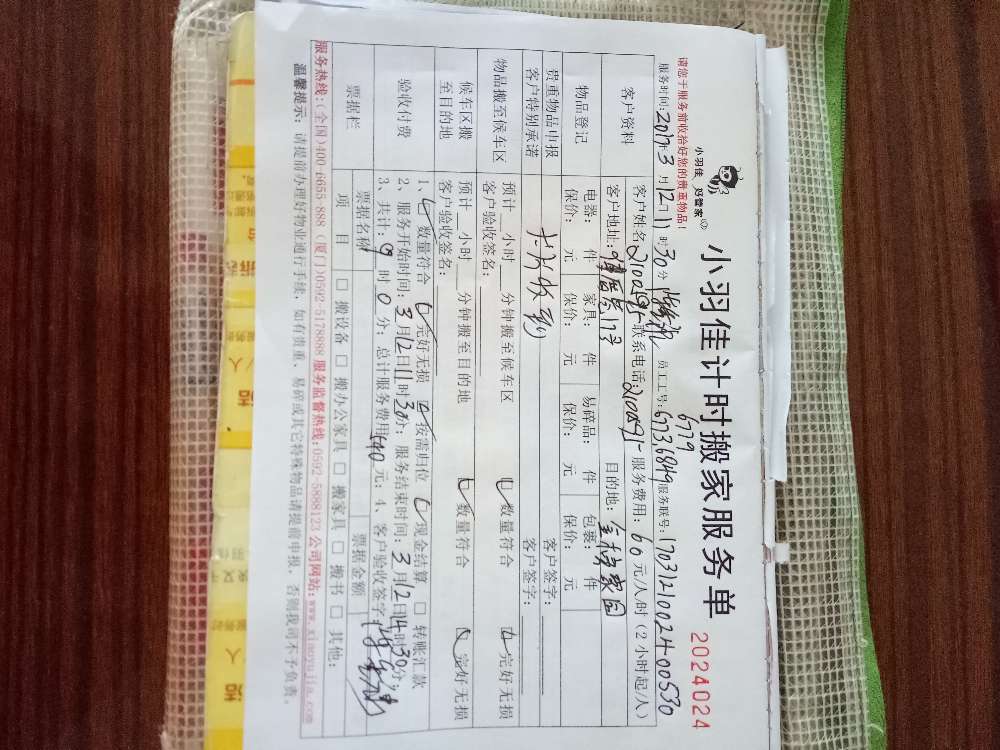 小羽佳 好管家
小羽佳计时搬家服务单 2024024
请您于服务前收拾好您的贵重物品！
6779
服务时间:2017年3月12日11时30分 员工工号:6736849服务联号:1703121002400530
客户资料
客户姓名: 联系电话: 服务费用:60元/人时（2小时起/人）
客户地址: 173 目的地:
物品登记
电器: 件 家具: 件 易碎品: 件 包裹: 件
保价: 元 保价: 元 保价: 元 保价: 元
贵重物品申报 客户签字:
客户特别承诺 客户签字:
物品搬至候车区
预计 小时 分钟搬至候车区 数量符合 完好无损
客户验收签名:
候车区搬至目的地
预计 小时 分钟搬至目的地 数量符合 完好无损
客户验收签名:
验收付费
1、数量符合 完好无损 按需归位 现金结算 □ 转账汇款
2、服务开始时间:3月12日11时30分; 服务结束时间:3月12日14时30分;
3、共计:9时0分; 总计服务费用:540元; 4、客户验收签字:
票据栏
票据名称 票据金额
项目 □ 搬设备 □ 搬办公家具 □ 搬家具 □ 搬书 □ 其他:
服务热线:(全国)400-6655-888 (厦门)0592-5178888 服务监督热线:0592-5888123 公司网站:www.xiaoyujia.com
温馨提示: 请提前办理好物业通行手续，如有贵重、易碎或其它特殊物品请提前申报，否则我司不予负责。